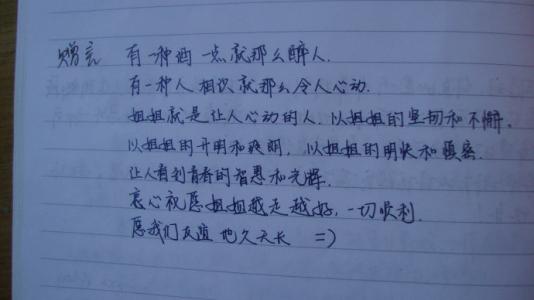 赠言 有一种酒 一点就那么醉人.
有一种人 相识就那么令人心动.
姐姐就是让人心动的人. 以姐姐的坚韧和不懈.
以姐姐的开明和爽朗, 以姐姐的明快和
让人看到青春的智慧和光辉.
衷心祝愿姐姐越走越好, 一切顺利.
愿我们友谊 地久天长 =)